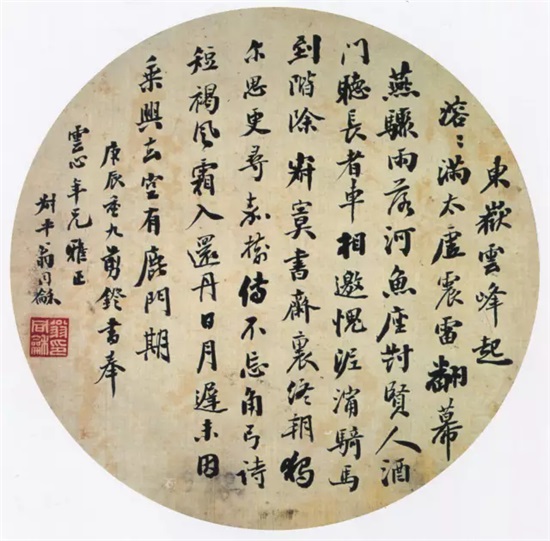 東嶽雲峰起
溶〻滿太虛震雷翻幕
燕驟雨落河魚座對賢人酒
門聽長者車相邀愧泥濘騎馬
到階除 寂寞書齋裏終朝獨
尔思更尋嘉樹傳不忘角弓詩
短褐風霜入還丹日月遲未因
乘興去空有鹿門期
庚辰重九剪鐙書奉
雲心年兄雅正
叔平翁同龢
翁同龢印